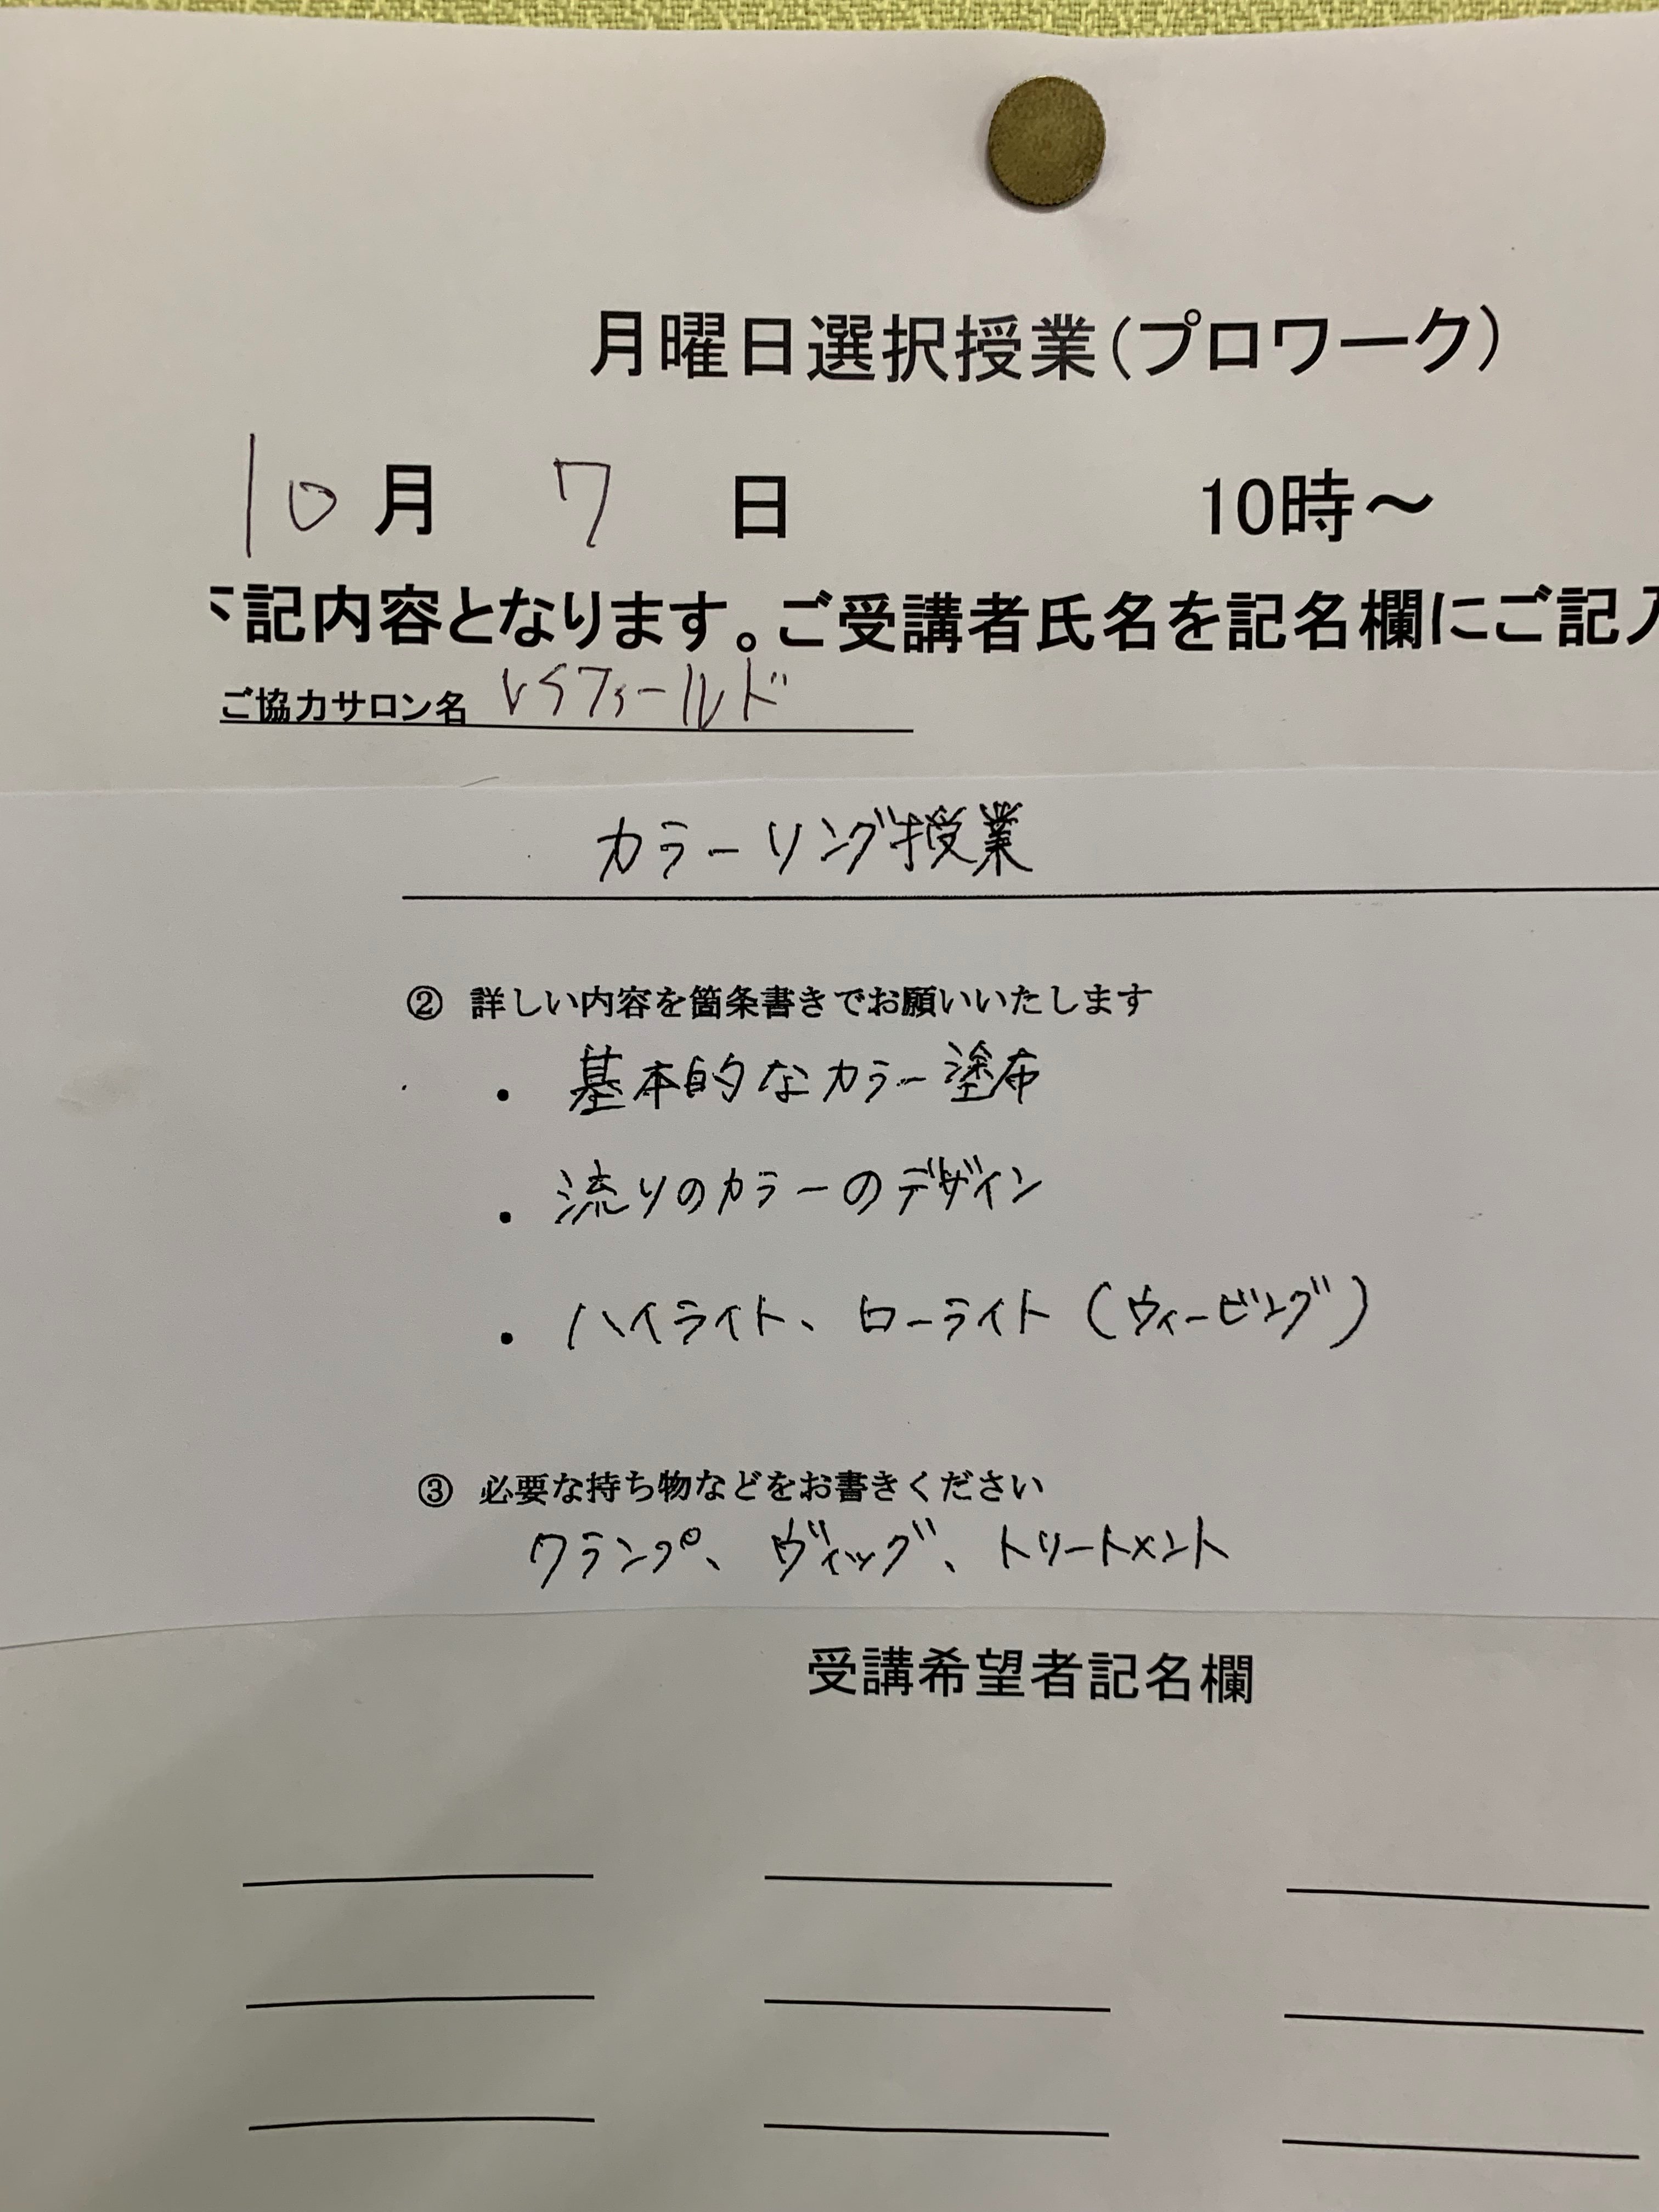 月曜日選択授業(プロワーク)
10月 7 日 10時～
下記内容となります。ご受講者氏名を記名欄にご記入
ご協力サロン名 VSフィールド
カラーリング授業
② 詳しい内容を箇条書きでお願いいたします
・ 基本的なカラー塗布
・ 流りのカラーのデザイン
・ ハイライト、ローライト(ウィービング)
③ 必要な持ち物などをお書きください
クランプ、ヴィッグ、トリートメント
受講希望者記名欄